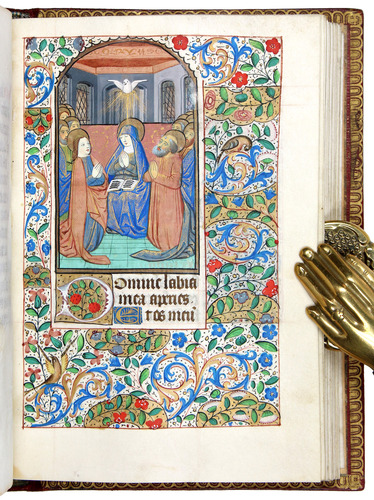 Domine labia
mea aperies.
Et os meū